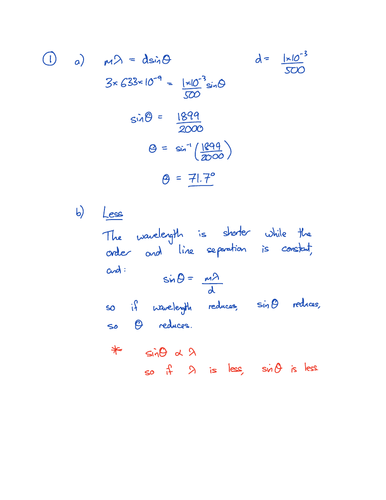 ① a) mλ = dsinθ d = 1×10⁻³/500
3×633×10⁻⁹ = 1×10⁻³/500 sinθ
sinθ = 1899/2000
θ = sin⁻¹(1899/2000)
θ = 71.7°
b) Less
The wavelength is shorter while the
order and line separation is constant,
and:
sinθ = mλ/d
so if wavelength reduces, sinθ reduces,
so θ reduces.
* sinθ α λ
so if λ is less, sinθ is less